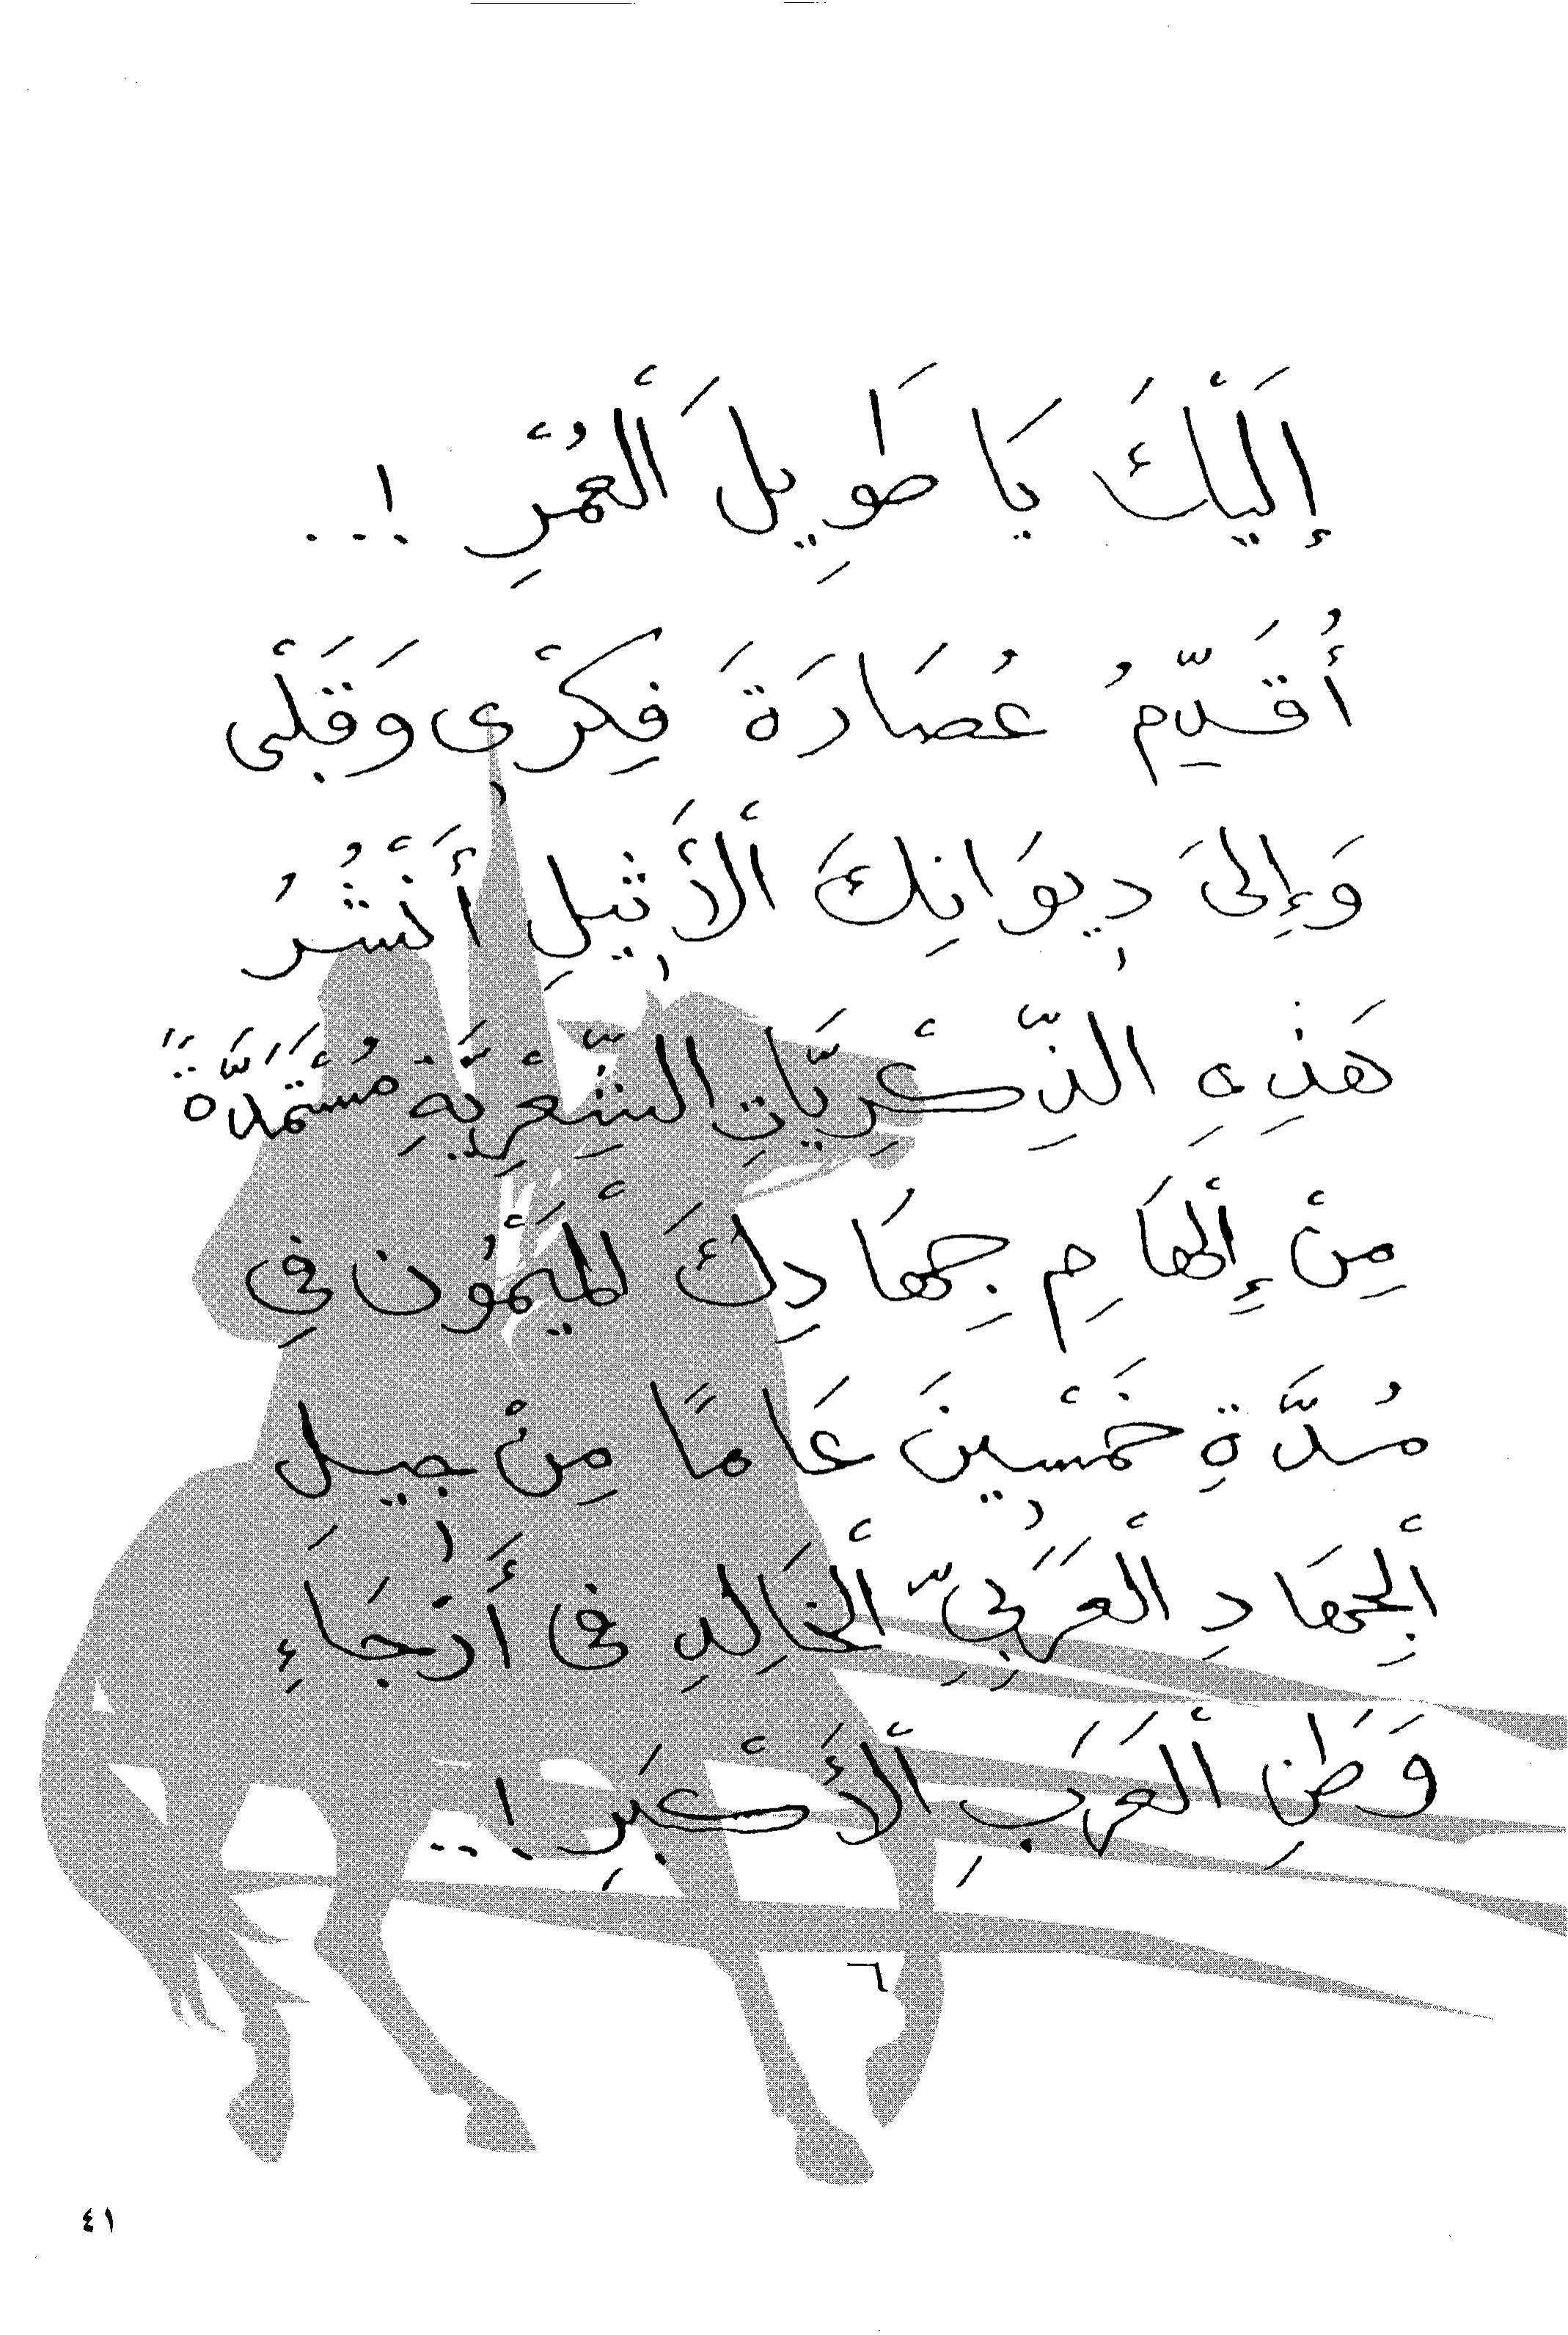 إِلَيْكَ يَا طَوِيلَ ٱلْعُمْرِ !...
أُقَدِّمُ عُصَارَةَ فِكْرِى وَقَلْبِى
وَإِلىَ دِيوَانِكَ ٱلْأَثِيلِ أَنْشُرُ
هَذِهِ الذِّكْرِيَّاتِ الشِّعْرِيَّةِ مُسْتَمَدَّةً
مِنْ إِلْهَامِ جِهَادِكَ ٱلْمَيْمُونِ فِى
مُدَّةِ خَمْسِينَ عَامًا مِنْ جِيلِ
ٱلْجِهَادِ ٱلْعَرَبِىِّ ٱلْخَالِدِ فى أَرْجَاءِ
وَطَنِ ٱلْعَرَبِ ٱلْأَكْبَرِ !...
٦
٤١